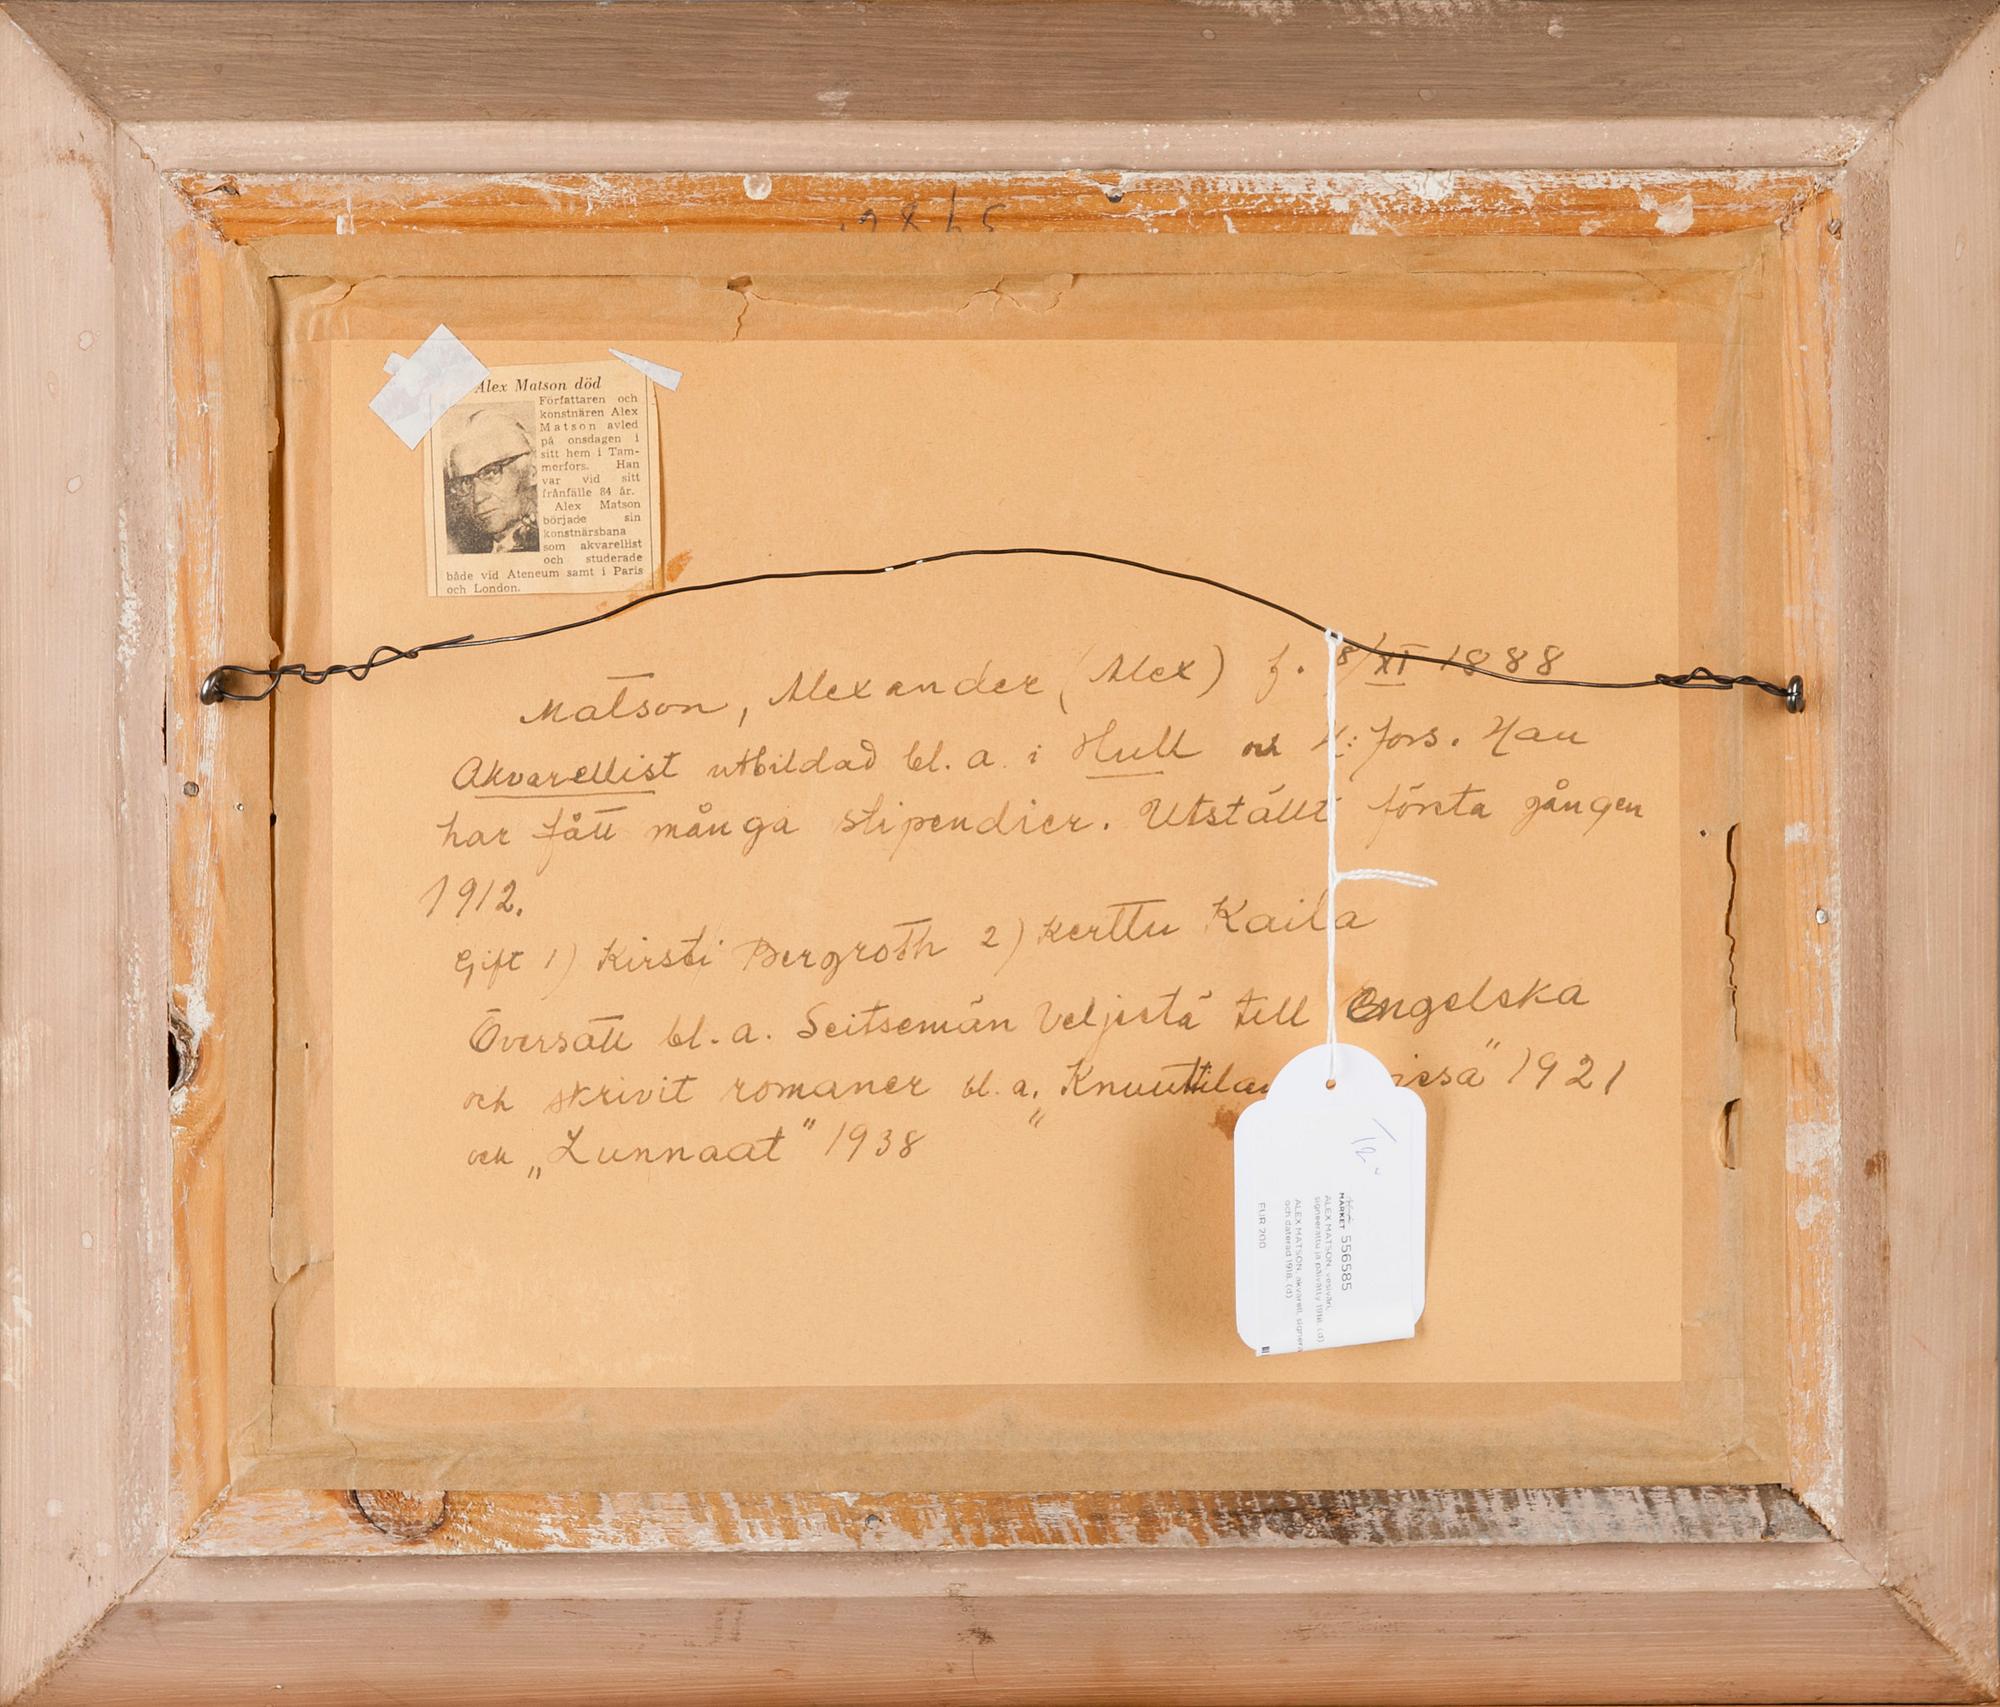 Alex Matson död
Författaren och
konstnären Alex
Matson avled
på onsdagen i
sitt hem i Tam-
merfors. Han
var vid sitt
frånfälle 84 år.
Alex Matson
började sin
konstnärsbana
som akvarellist
och studerade
både vid Ateneum samt i Paris
och London.
Matson, Alexander (Alex) f. 8/XI 1888
Akvarellist utbildad bl. a. i Hull och H:fors. Han
har fått många stipendier. Utställt första gången
1912.
Gift 1) Kirsti Bergroth 2) Kerttu Kaila
Översatt bl. a. Seitsemän Veljestä till Engelska
och skrivit romaner bl. a. "Knuuttilan 1921
och "Lunnaat" 1938
MARKET 556585
ALEX MATSON, vesiväri,
signeerattu ja päivätty 1918. (d)
ALEX MATSON, akvarell, signera
och daterad 1918. (d)
EUR 200